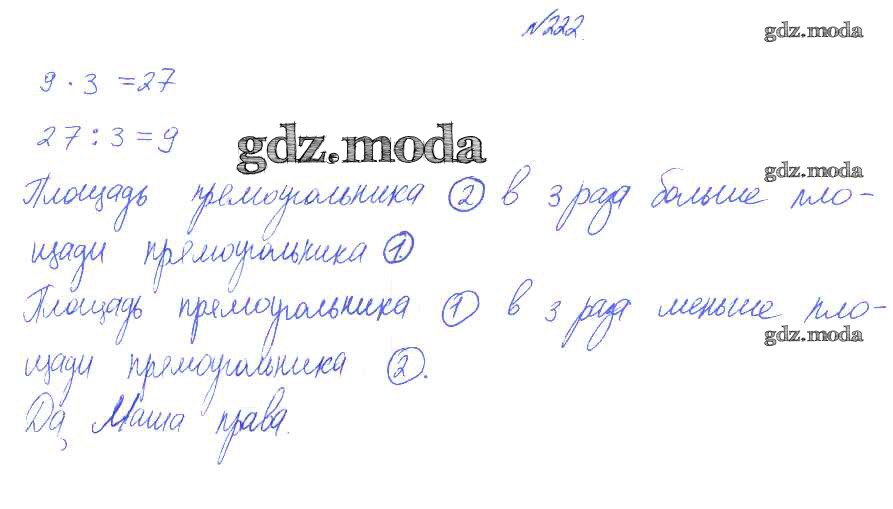 №222.
gdz.moda
9 · 3 = 27
27 : 3 = 9
gdz.moda
gdz.moda
Площадь прямоугольника 2 в 3 раза больше пло-
щади прямоугольника 1.
Площадь прямоугольника 1 в 3 раза меньше пло-
gdz.moda
щади прямоугольника 2.
Да, Маша права.